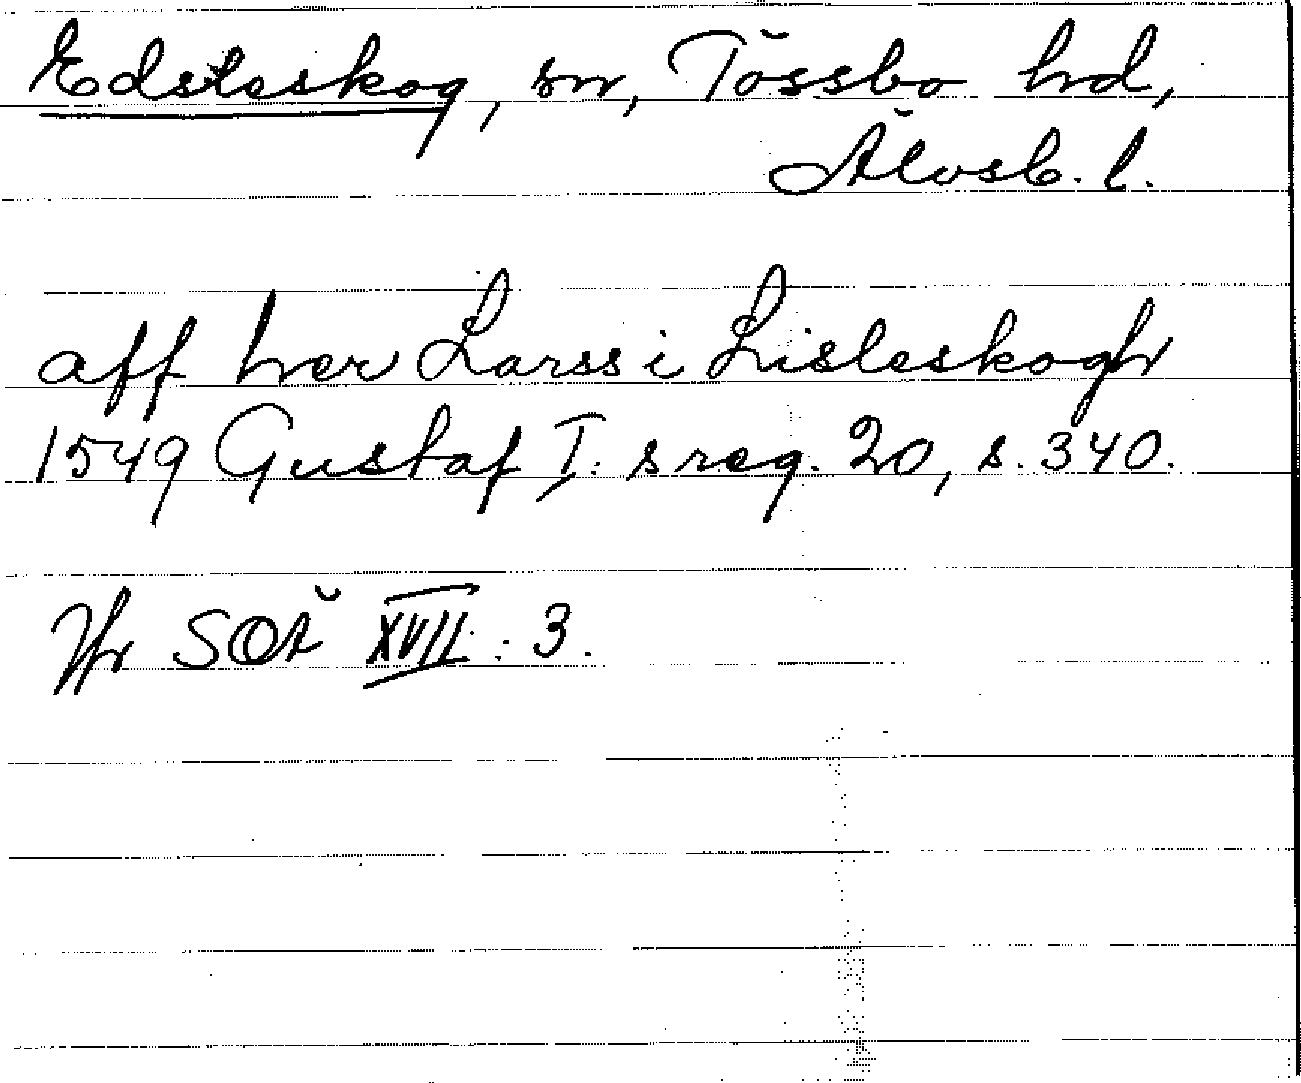 Edsleskog, sn, Tössbo hd,
Älvsb. l.
aff her Larss i Lisleskogh
1549 Gustaf I: s reg. 20, s. 340.
Jfr SOÄ XVII : 3.